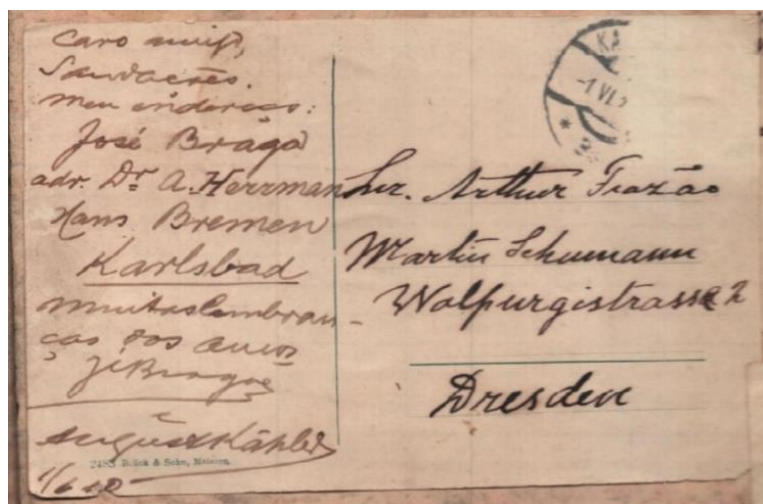 Caro amigo,
Saudações.
meu endereço:
José Braga
adr. Dr. A. Herrmann
Haus Bremen
Karlsbad
muitas lembran-
ças dos amos
J. Braga
August Kähler
1/6
2483 Brück & Sohn, Meissen.
KA
-1 VI
Snr. Arthur Frazão
Martin Schumann
Walpurgistrasse 2
Dresden